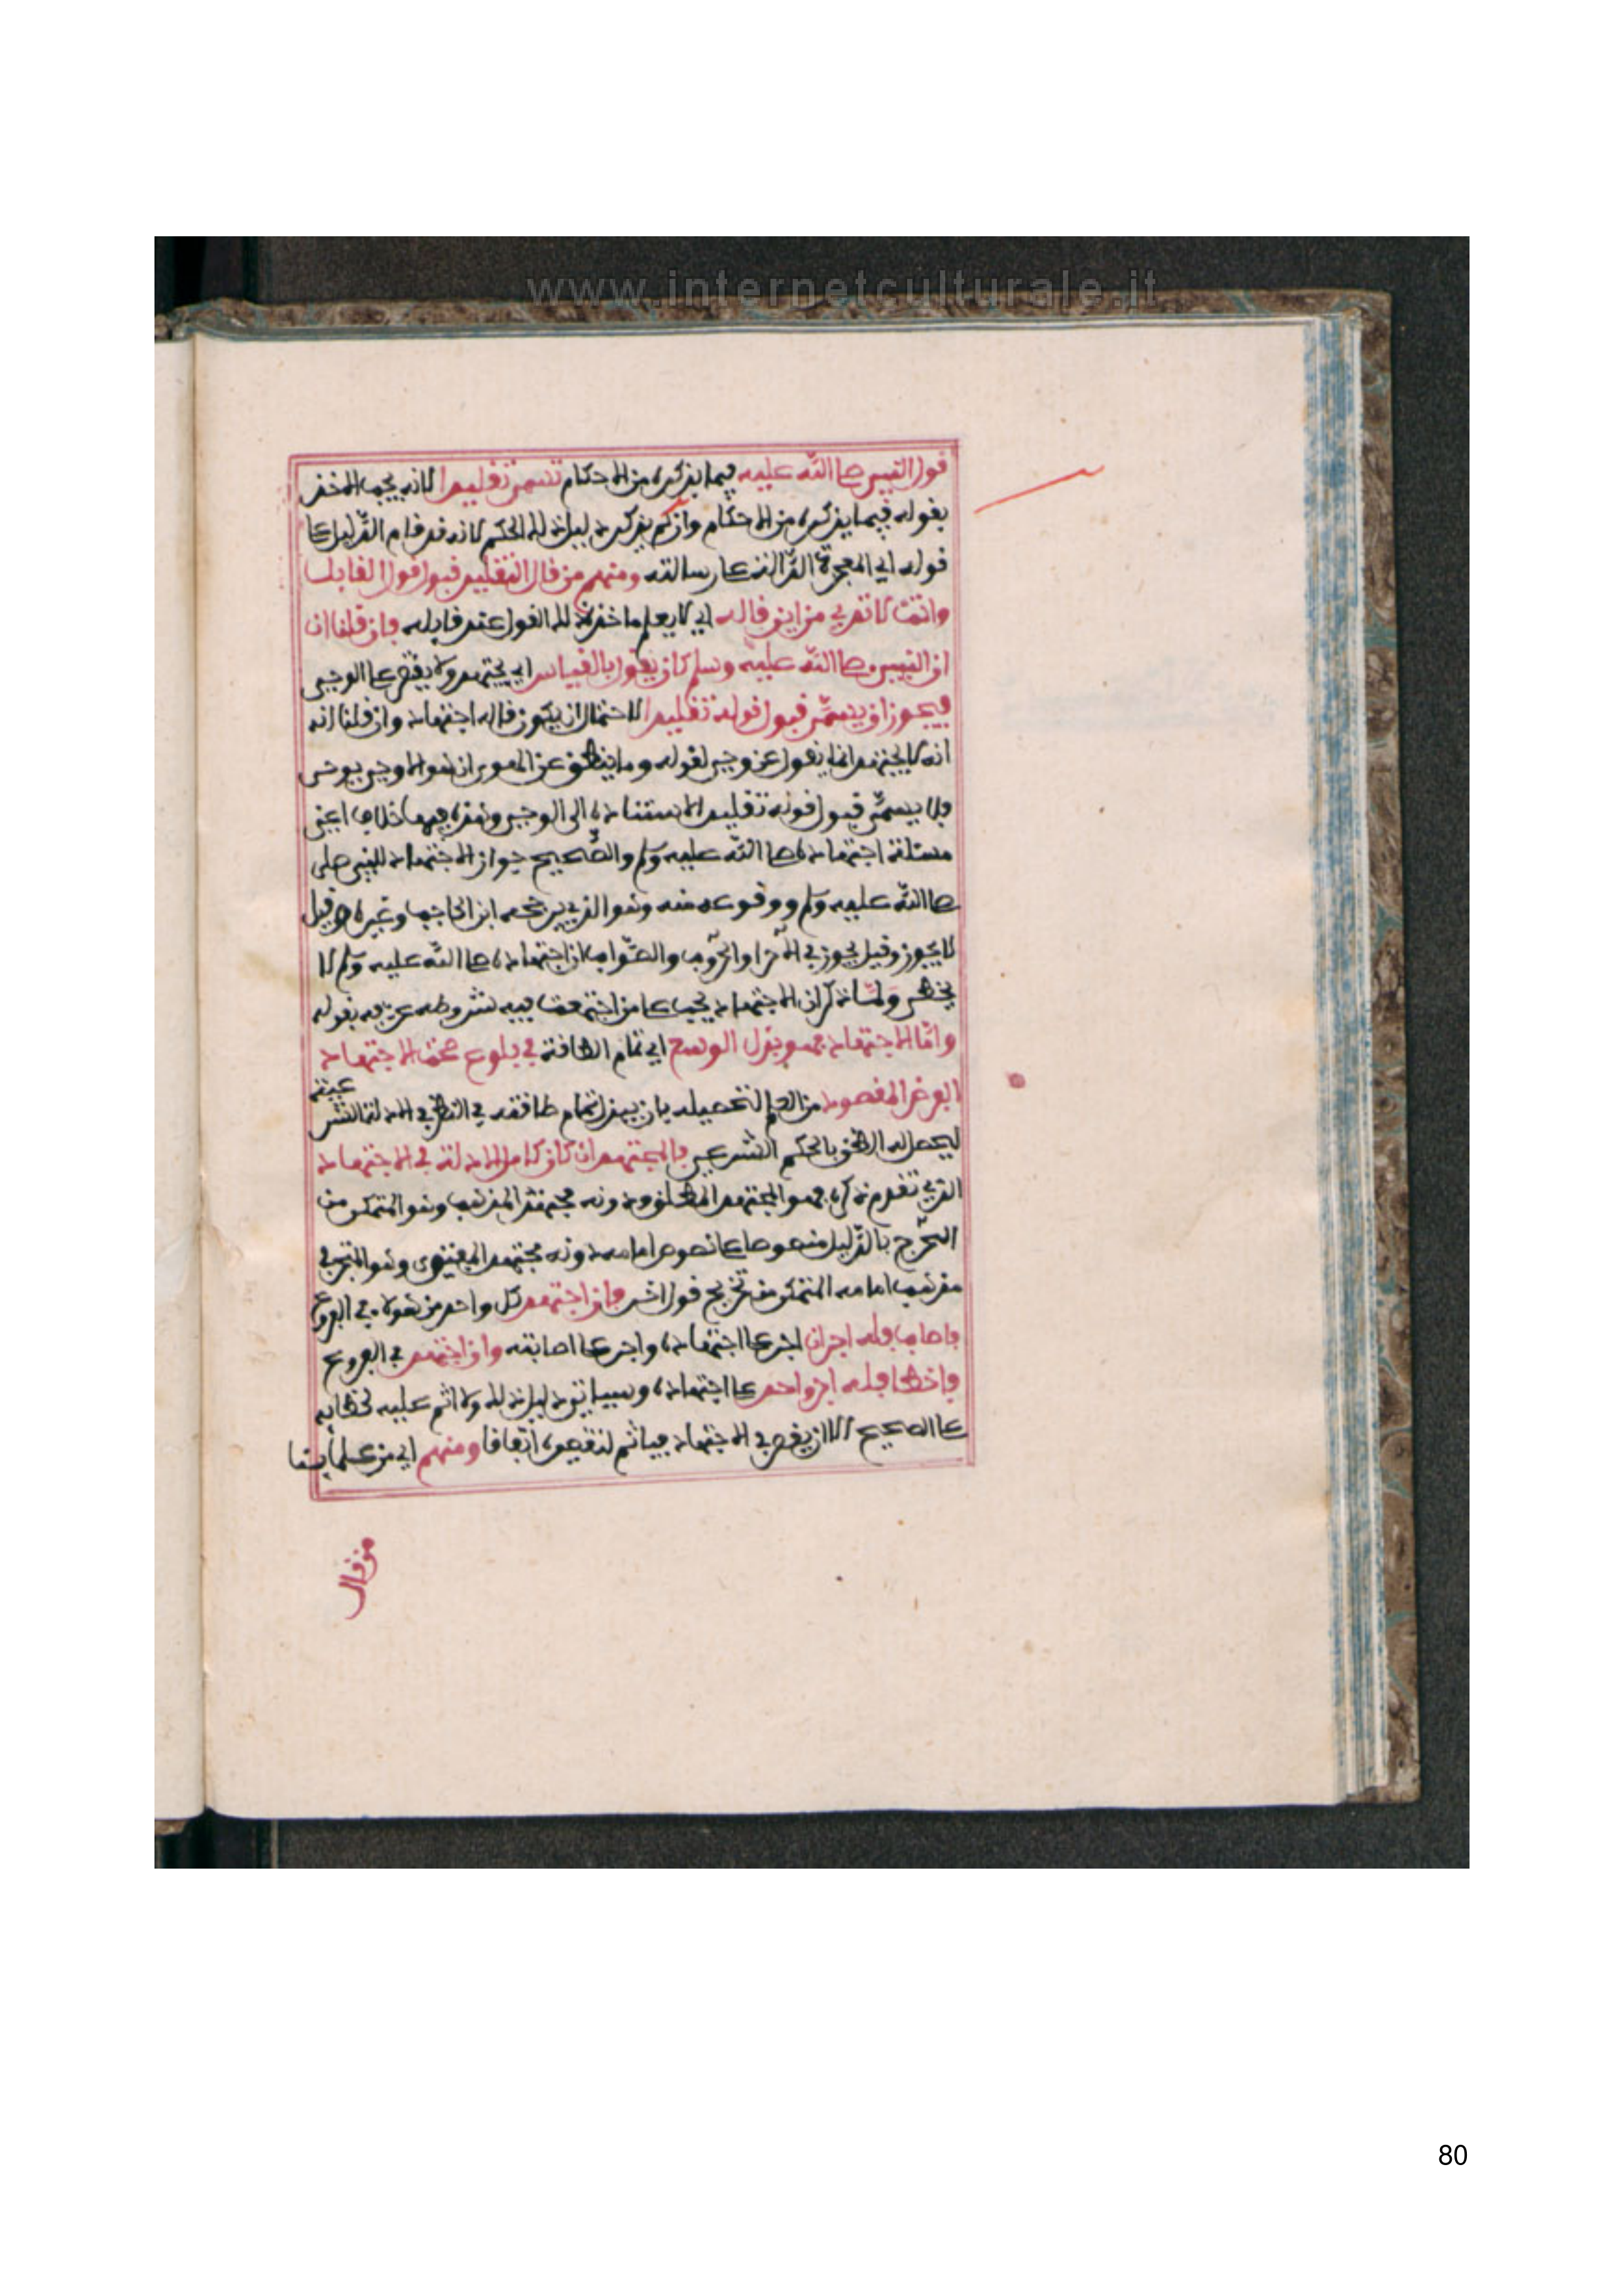 www.internetculturale.it
قول النبي صلى الله عليه فيما يذكره من الاحكام تسمى تقليدا لانه يجب الاخذ
بقوله فيما يذكره من الاحكام وان لم يذكر دليل ذلك الحكم لانه قد قام الدليل على
قوله اي المعجزة الدالة على رسالته ومنهم من قال التقليد قبول قول القايل
وانت لا تدري من اين قاله اي لا يعلم ماخذ ذلك القول عند قايله فان قلنا ان
ان النبي صلى الله عليه وسلم كان يقول بالقياس اي يجتهد ولا يقتصر على الوحي
فيجوز ان يسمى قبول قوله تقليدا لاحتمال ان يكون قاله اجتهاد وان قلنا انه
انه لا يجتهد انما يقول عن وحي لقوله وما ينطق عن الهوى ان هو الا وحي يوحى
فلا يسمى قبول قوله تقليد الاستناده الى الوحي وهذه فيها خلاف اعني
مسئلة اجتهاده صلى الله عليه وسلم والصحيح جواز الاجتهاد للنبي صلى
صلى الله عليه وسلم ووقوعه منه وهو الذي يرجحه ابن الحاجب وغيره وقيل
لا يجوز وقيل يجوز في الآرا والحروب والصواب ان اجتهاده صلى الله عليه وسلم لا
يخطى ولما ذكر ان الاجتهاد يجب على من اجتمعت فيه شروطه عرفه بقوله
واما الاجتهاد فهو بذل الوسع اي تمام الطاقة في بلوغ صحة الاجتهاد
الغرض المقصود من العلم لتحصيله بان يبذل تمام طاقته في النظر في الادلة الشرعية
ليحصل له الظن بالحكم الشرعي فالمجتهد ان كان كامل الادلة في الاجتهاد
الذي تقدم ذكره فهو المجتهد المطلق ودونه مجتهد المذهب وهو المتمكن من
التخرج بالدليل منصوصا على نصوص امامه ودونه مجتهد الفتوى وهو المتبحر في
مذهب امامه المتمكن من ترجيح قول اخر فان اجتهد كل واحد من هولاء في الفروع
فاصاب فله اجران اجر على اجتهاده واجر على اصابته وان اجتهد في الفروع
واخطا فله اجر واحد على اجتهاده وسياتي دليل ذلك ولا اثم عليه لخطايه
على الصحيح الا ان يقصر في الاجتهاد فياثم لتقصيره اتفاقا ومنهم اي من علمائنا
من قال
80